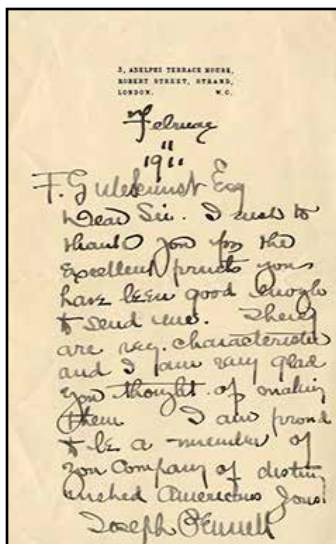 3, ADELPHI TERRACE HOUSE,
ROBERT STREET, STRAND,
LONDON. W.C.
February
11
1911
F. Gutekunst Esq
Dear Sir. I wish to
thank you for the
excellent prints you
have been good enough
to send me. They
are very characteristic
and I am very glad
you thought of making
them I am proud
to be a member of
your Company of distin
uished Americans Yours
Joseph Pennell